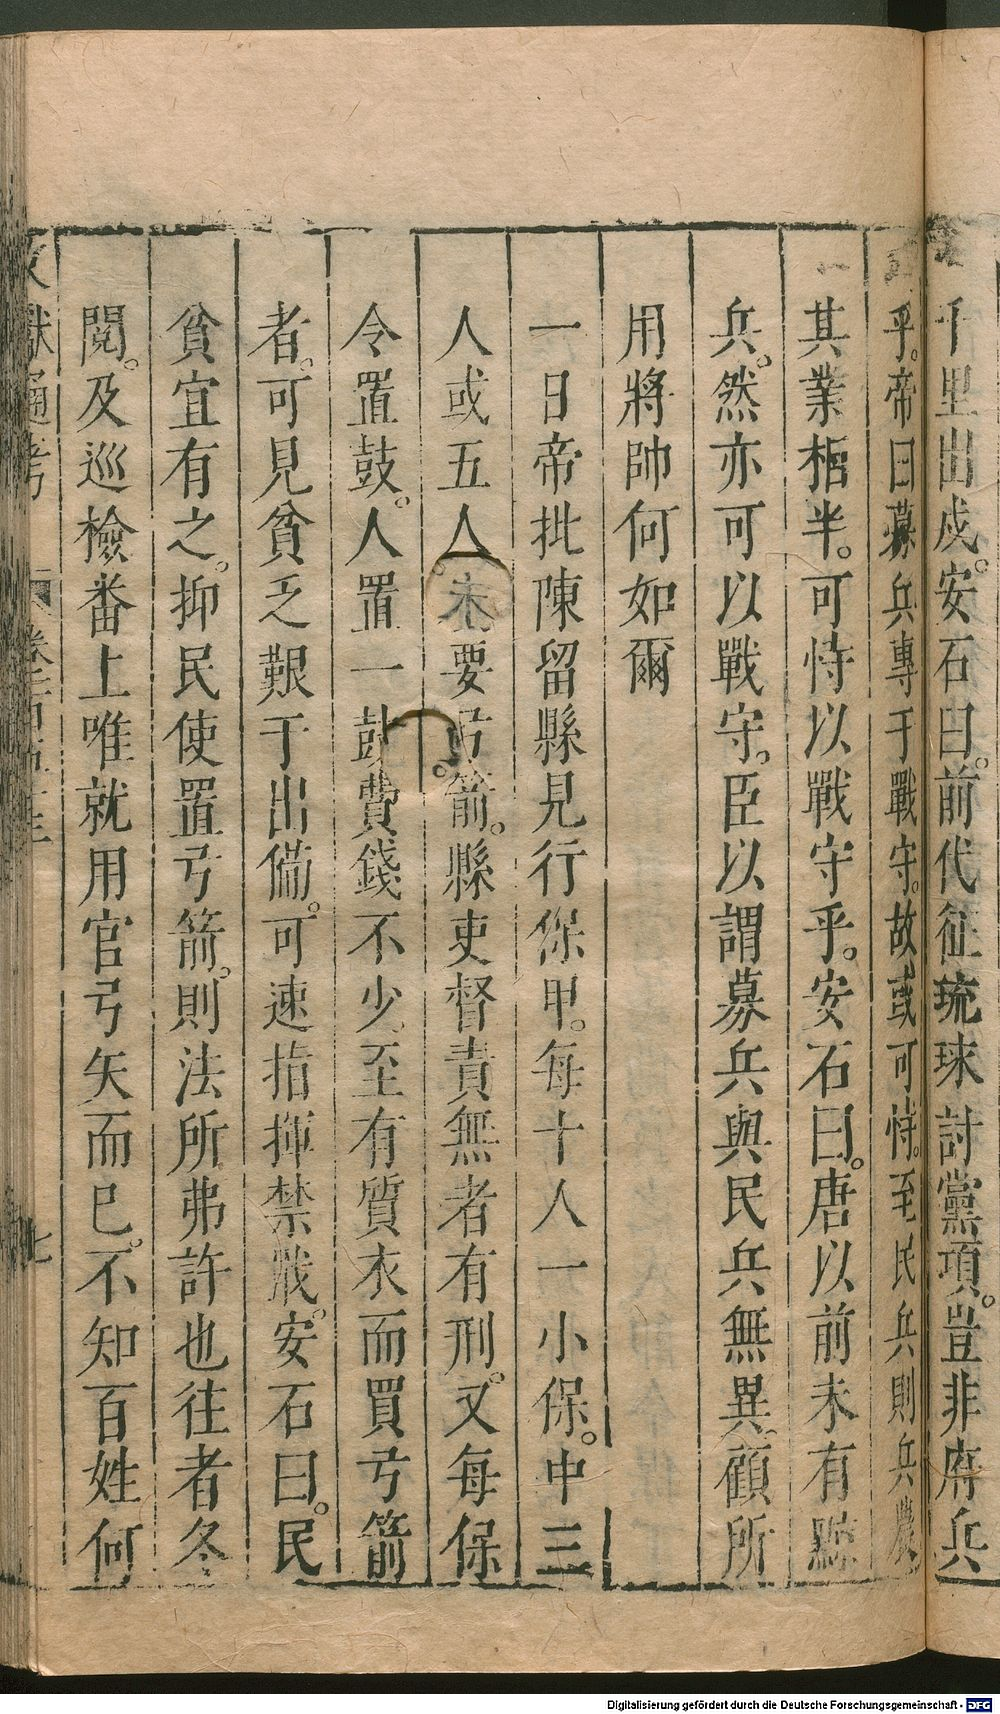 千里出戍。安石曰。前代征琉球討黨項。豈非府兵
乎。帝曰募兵專于戰守。故或可恃。至民兵則兵農
其業相半。可恃以戰守乎。安石曰。唐以前未有黥
兵。然亦可以戰守。臣以謂募兵與民兵無異顧所
用將帥何如爾
一日帝批陳留縣見行保甲。每十人一小保。中三
人或五人。未要弓箭。縣吏督責無者有刑。又每保
令置鼓。人置一鼓費錢不少。至有質衣而買弓箭
者。可見貧乏艱于出備。可速指揮禁戢。安石曰。民
貧宜有之。抑民使置弓箭。則法所弗許也往者冬
閱。及巡檢番上唯就用官弓矢而已。不知百姓何
文獻通考
七
Digitalisierung gefördert durch die Deutsche Forschungsgemeinschaft - DFG